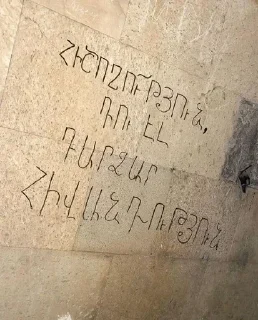 ՀԻՇՈՂՈՒ՜ԹՅՈՒՆ,
ԴՈՒ ԷԼ
ԴԱՐՁԱՐ
ՀԻՎԱՆԴՈՒԹՅՈՒՆ